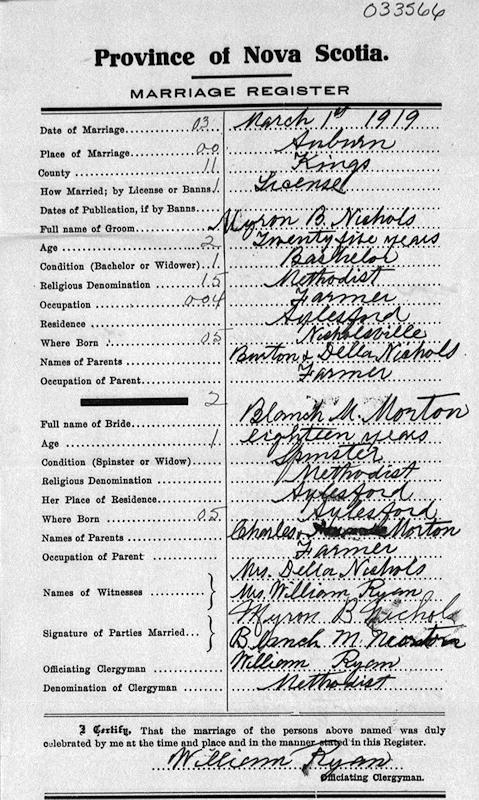 033566
Province of Nova Scotia.
MARRIAGE REGISTER
Date of Marriage 03 March 1st 1919
Place of Marriage 00 Auburn
County 11 Kings
How Married; by License or Banns 1 License
Dates of Publication, if by Banns
Full name of Groom Myron B. Nichols
Age 2 Twenty five years
Condition (Bachelor or Widower) 1 Bachelor
Religious Denomination 15 Methodist
Occupation 004 Farmer
Residence Aylesford
Where Born 05 Nicholsville
Names of Parents Burton & Della Nichols
Occupation of Parent Farmer
2
Full name of Bride Blanch M. Morton
Age 1 eighteen years
Condition (Spinster or Widow) Spinster
Religious Denomination Methodist
Her Place of Residence Aylesford
Where Born 05 Aylesford
Names of Parents Charles Morton
Occupation of Parent Farmer
Names of Witnesses Mrs. Della Nichols
Mrs. William Ryan
Signature of Parties Married Myron B Nichols
Blanch M. Morton
Officiating Clergyman William Ryan
Denomination of Clergyman Methodist
I Certify, That the marriage of the persons above named was duly
celebrated by me at the time and place and in the manner stated in this Register.
William Ryan
Officiating Clergyman.